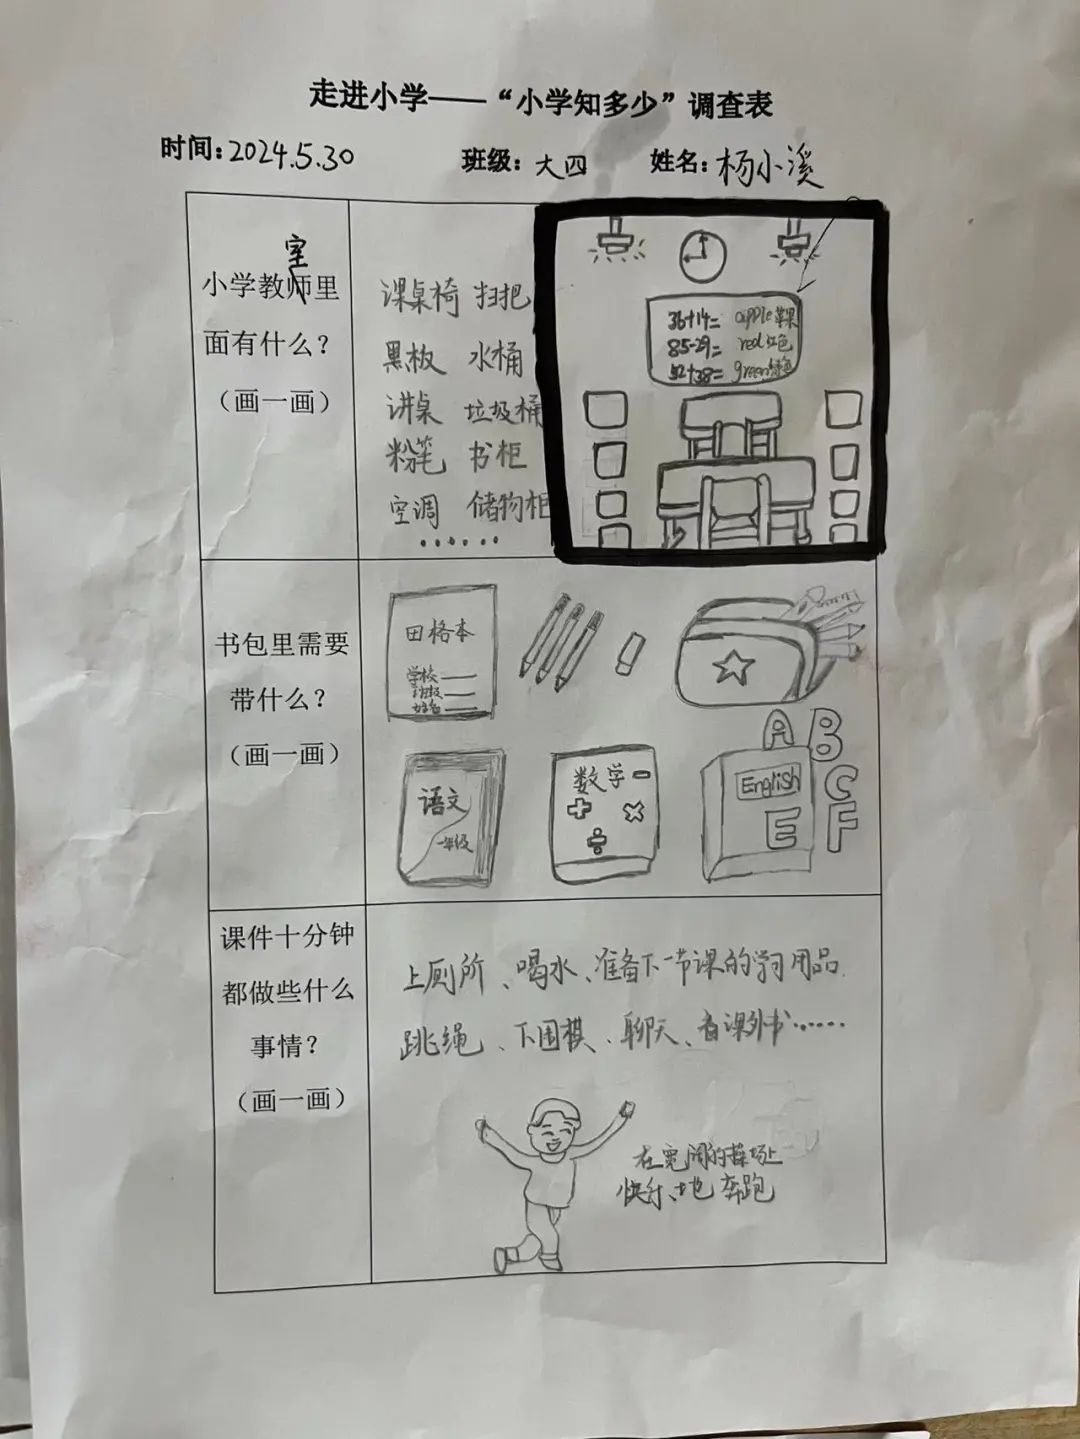 走进小学——“小学知多少”调查表
时间:2024.5.30 班级:大四 姓名:杨小溪
室
小学教师里
面有什么？
（画一画）
课桌椅 扫把
黑板 水桶
讲桌 垃圾桶
粉笔 书柜
空调 储物柜
......
36+14= apple 苹果
85-29= red 红色
52+38= green 绿色
书包里需要
带什么？
（画一画）
田格本
学校
班级
姓名
语文
一年级
数学
- + × ÷
English
A B C
E F
课件十分钟
都做些什么
事情？
（画一画）
上厕所、喝水、准备下一节课的学习用品.
跳绳、下围棋、聊天、看课外书......
在宽阔的操场上
快乐地奔跑